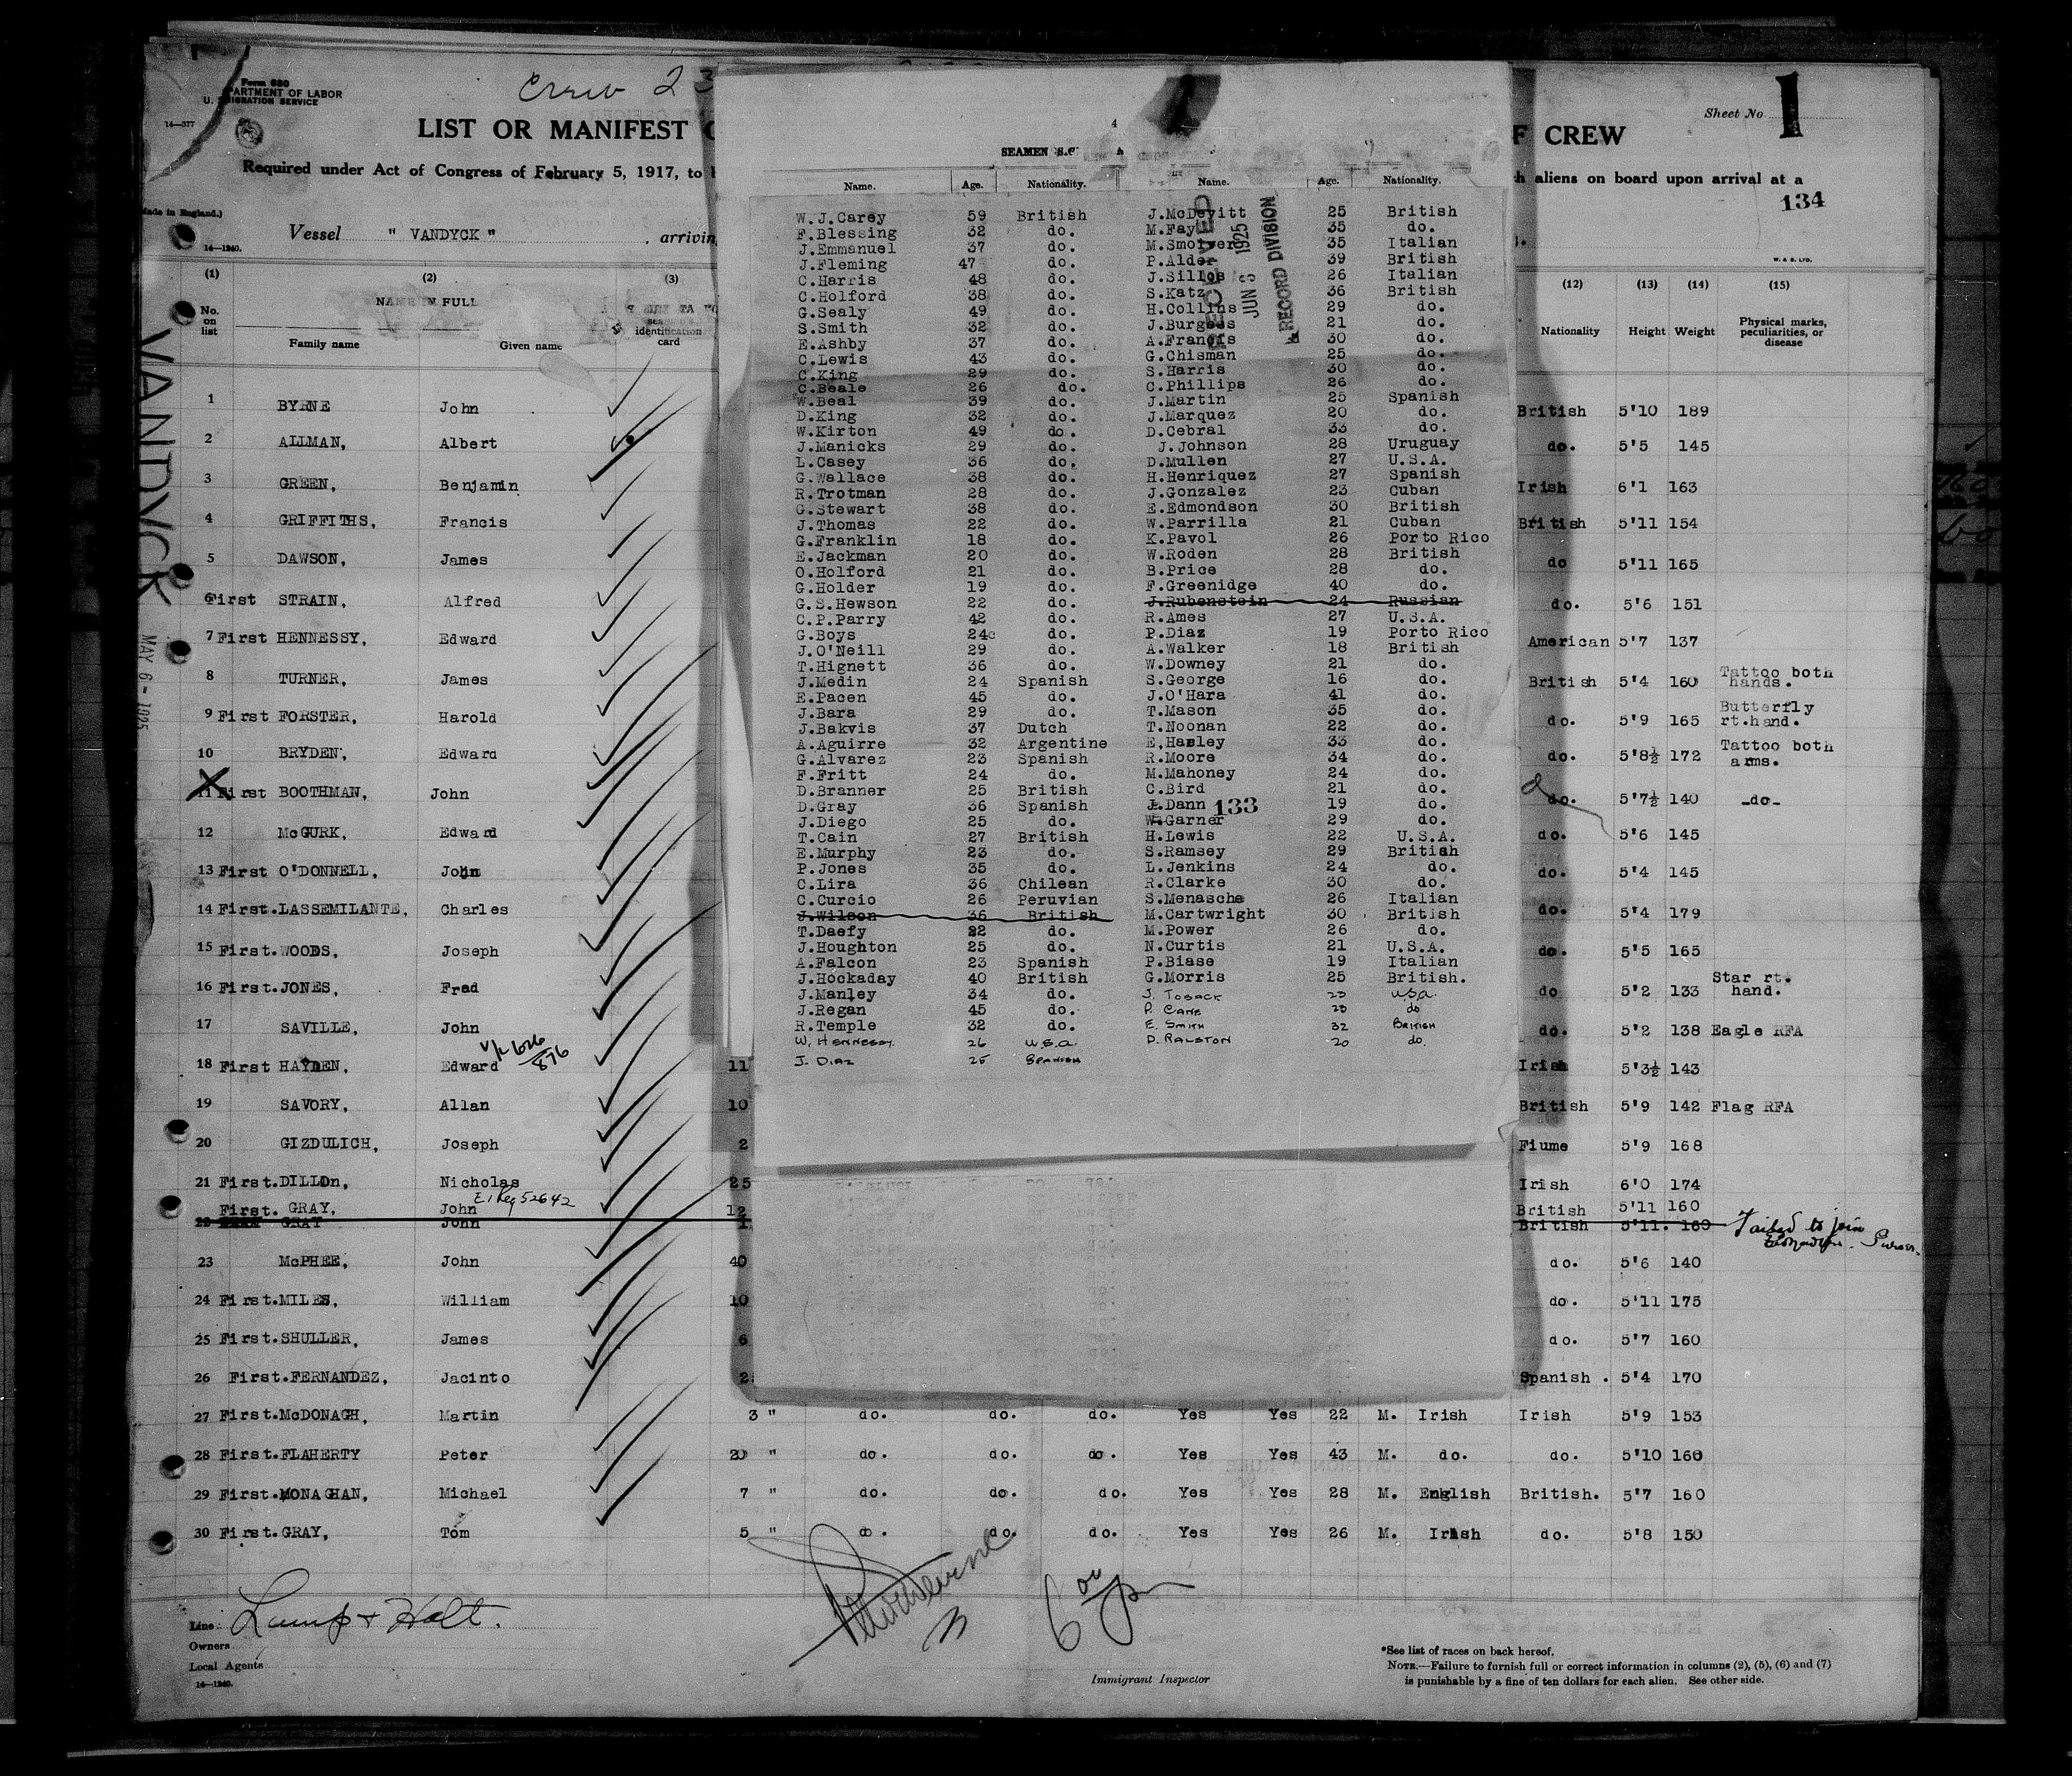 Form 680
U. S. IMMIGRATION SERVICE
14—377
Crew 23
LIST OR MANIFEST
F CREW
Sheet No 1
Required under Act of Congress of February 5, 1917, to
h aliens on board upon arrival at a
134
Made in England.)
14—1240.
Vessel " VANDYCK " , arriving
W. & S. LTD.
VANDYCK
MAY 6 - 1925
(1) (2) (3) (12) (13) (14) (15)
No. on list NAME IN FULL Family name Given name identification card Nationality Height Weight Physical marks, peculiarities, or disease
1 BYRNE John British 5'10 189
2 ALLMAN, Albert do. 5'5 145
3 GREEN, Benjamin Irish 6'1 163
4 GRIFFITHS, Francis British 5'11 154
5 DAWSON, James do 5'11 165
6 First STRAIN, Alfred do. 5'6 151
7 First HENNESSY, Edward American 5'7 137
8 TURNER, James British 5'4 160 Tattoo both hands.
9 First FORSTER, Harold do. 5'9 165 Butterfly rt.hand.
10 BRYDEN, Edward do. 5'8½ 172 Tattoo both arms.
11 First BOOTHMAN, John do. 5'7½ 140 -do-
12 McGURK, Edward do. 5'6 145
13 First O'DONNELL, John do. 5'4 145
14 First.LASSEMILANTE, Charles do. 5'4 179
15 First.WOODS, Joseph do. 5'5 165
16 First.JONES, Fred do 5'2 133 Star rt. hand.
17 SAVILLE, John do. 5'2 138 Eagle RFA
18 First HAYDEN, Edward 11 Irish 5'3½ 143
19 SAVORY, Allan 10 British 5'9 142 Flag RFA
20 GIZDULICH, Joseph 2 Fiume 5'9 168
21 First.DILLOn, Nicholas 25 Irish 6'0 174
First. GRAY, John 12 British 5'11 160
22 GRAY John 1 British 5'11. 160 Failed to join
23 McPHEE, John 40 do. 5'6 140
24 First.MILES, William 10 do. 5'11 175
25 First.SHULLER, James 6 do. 5'7 160
26 First.FERNANDEZ, Jacinto 2 Spanish . 5'4 170
27 First.McDONAGH, Martin 3 " do. do. do. Yes Yes 22 M. Irish Irish 5'9 153
28 First.FLAHERTY Peter 20 " do. do. do. Yes Yes 43 M. do. do. 5'10 160
29 First.MONAGHAN, Michael 7 " do. do. do. Yes Yes 28 M. English British. 5'7 160
30 First.GRAY, Tom 5 " do. do. do. Yes Yes 26 M. Irish do. 5'8 150
Line Lamp + Holt.
Owners
Local Agents
14—1240.
Immigrant Inspector
*See list of races on back hereof.
NOTE.—Failure to furnish full or correct information in columns (2), (5), (6) and (7)
is punishable by a fine of ten dollars for each alien. See other side.
4
SEAMEN S.S.
Name. Age. Nationality. Name. Age. Nationality.
RECEIVED
JUN 3 1925
RECORD DIVISION
W.J.Carey 59 British J.McDevitt 25 British
F.Blessing 32 do. M.Fay 35 do.
J.Emmanuel 37 do. M.Smoiver 35 Italian
J.Fleming 47 do. P.Alder 39 British
C.Harris 48 do. J.Sillos 26 Italian
C.Holford 38 do. S.Katz 36 British
G.Sealy 49 do. H.Collins 29 do.
S.Smith 32 do. J.Burgess 21 do.
E.Ashby 37 do. A.Francis 30 do.
C.Lewis 43 do. G.Chisman 25 do.
C.King 29 do. S.Harris 30 do.
C.Beale 26 do. C.Phillips 26 do.
W.Beal 39 do. J.Martin 25 Spanish
D.King 32 do. J.Marquez 20 do.
W.Kirton 49 do. D.Cebral 33 do.
J.Manicks 29 do. J.Johnson 28 Uruguay
L.Casey 36 do. D.Mullen 27 U.S.A.
G.Wallace 38 do. H.Henriquez 27 Spanish
R.Trotman 28 do. J.Gonzalez 23 Cuban
G.Stewart 38 do. E.Edmondson 30 British
J.Thomas 22 do. W.Parrilla 21 Cuban
G.Franklin 18 do. K.Pavol 26 Porto Rico
E.Jackman 20 do. W.Roden 28 British
O.Holford 21 do. B.Price 28 do.
G.Holder 19 do. F.Greenidge 40 do.
G.S.Hewson 22 do. J.Rubenstein 24 Russian
C.P.Parry 42 do. R.Ames 27 U.S.A.
G.Boys 24 do. P.Diaz 19 Porto Rico
J.O'Neill 29 do. A.Walker 18 British
T.Hignett 36 do. W.Downey 21 do.
J.Medin 24 Spanish S.George 16 do.
E.Pacen 45 do. J.O'Hara 41 do.
J.Bara 29 do. T.Mason 35 do.
J.Bakvis 37 Dutch T.Noonan 22 do.
A.Aguirre 32 Argentine E,Harley 33 do.
G.Alvarez 23 Spanish R.Moore 34 do.
F.Fritt 24 do. M.Mahoney 24 do.
D.Branner 25 British C.Bird 21 do.
D.Gray 36 Spanish J.Dann 133 19 do.
J.Diego 25 do. W.Garner 29 do.
T.Cain 27 British H.Lewis 22 U.S.A.
E.Murphy 23 do. S.Ramsey 29 British
P.Jones 35 do. L.Jenkins 24 do.
C.Lira 36 Chilean R.Clarke 30 do.
C.Curcio 26 Peruvian S.Menasche 26 Italian
J.Wilson 36 British M.Cartwright 30 British
T.Daefy 22 do. M.Power 26 do.
J.Houghton 25 do. N.Curtis 21 U.S.A.
A.Falcon 23 Spanish P.Biase 19 Italian
J.Hockaday 40 British G.Morris 25 British.
J.Manley 34 do. J. TOBACK 20 USA.
J.Regan 45 do. P. CANE 20 do
R.Temple 32 do. E. SMITH 32 BRITISH
W. HENNESSY 26 U.S.A. D. RALSTON 20 do.
J. DIAZ 25 SPANISH